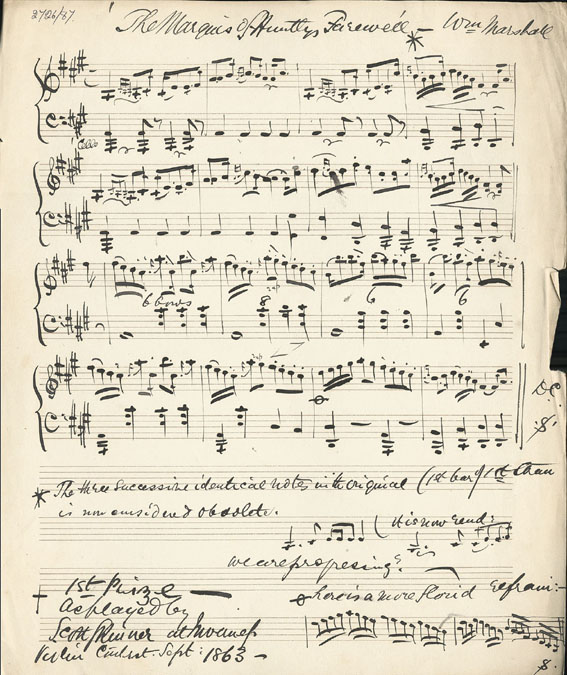 2726/67.
The Marquis of Huntlys Farewell — Wm Marshall
*
Cello
6 bows 8 6 6
D.C.
.S.
* The three successive identical notes with original (1st bar of 1st strain
is now considered obsolete.
(it is now read:
we are progressing?
† 1st Prize —
As played by
Scott Skinner at Inverness
Violin Contest. Sept: 1863 —
here is a more florid refrain:-
.S.